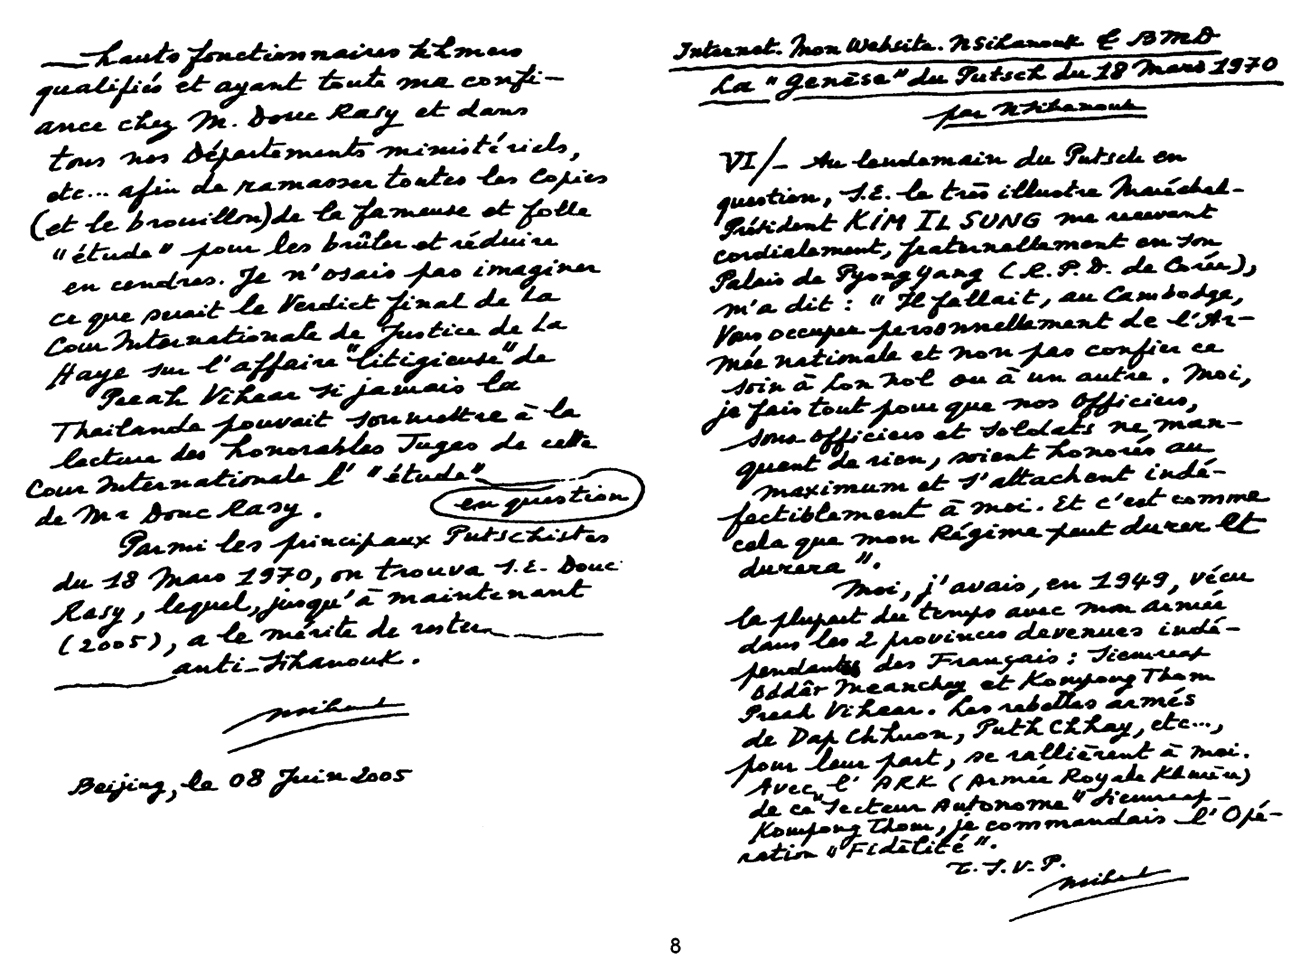 hauts fonctionnaires khmers
qualifiés et ayant toute ma confi-
ance chez M. Douc Rasy et dans
tous nos Départements ministériels,
etc... afin de ramasser toutes les copies
(et le brouillon) de la fameuse et folle
"étude" pour les brûler et réduire
en cendres. Je n'osais pas imaginer
ce que serait le Verdict final de La
Cour Internationale de Justice de La
Haye sur l'affaire "litigieuse" de
Preah Vihear si jamais la
Thaïlande pouvait soumettre à la
lecture des honorables Juges de cette
Cour Internationale l'"étude"
en question
de Mr Douc Rasy.
Parmi les principaux Putschistes
du 18 Mars 1970, on trouva S.E. Douc
Rasy, lequel, jusqu'à maintenant
(2005), a le mérite de rester
anti-Sihanouk.
Beijing, le 08 Juin 2005
Internet. Mon Website. NSihanouk & BMD
La "Genèse" du Putsch du 18 Mars 1970
par NSihanouk
VI/- Au lendemain du Putsch en
question, S.E. le très illustre Maréchal-
Président KIM IL SUNG me recevant
cordialement, fraternellement en son
Palais de Pyongyang (R.P.D. de Corée),
m'a dit : "Il fallait, au Cambodge,
Vous occuper personnellement de l'Ar-
mée nationale et non pas confier ce
soin à Lon Nol ou à un autre. Moi,
je fais tout pour que nos Officiers,
sous officiers et soldats ne man-
quent de rien, soient honorés au
maximum et s'attachent indé-
fectiblement à moi. Et c'est comme
cela que mon Régime peut durer et
durera".
Moi, j'avais, en 1949, vécu
la plupart du temps avec mon armée
dans les 2 provinces devenues indé-
pendantes des Français : Siemreap
Oddâr Meanchey et Kompong Thom
Preah Vihear. Les rebelles armés
de Dap Chhuon, Puth Chhay, etc...,
pour leur part, se rallièrent à moi.
Avec l'ARK (Armée Royale Khmère)
de ce "Secteur Autonome" Siemreap-
Kompong Thom, je commandais l'Opé-
ration "Fidélité".
T.S.V.P.
8